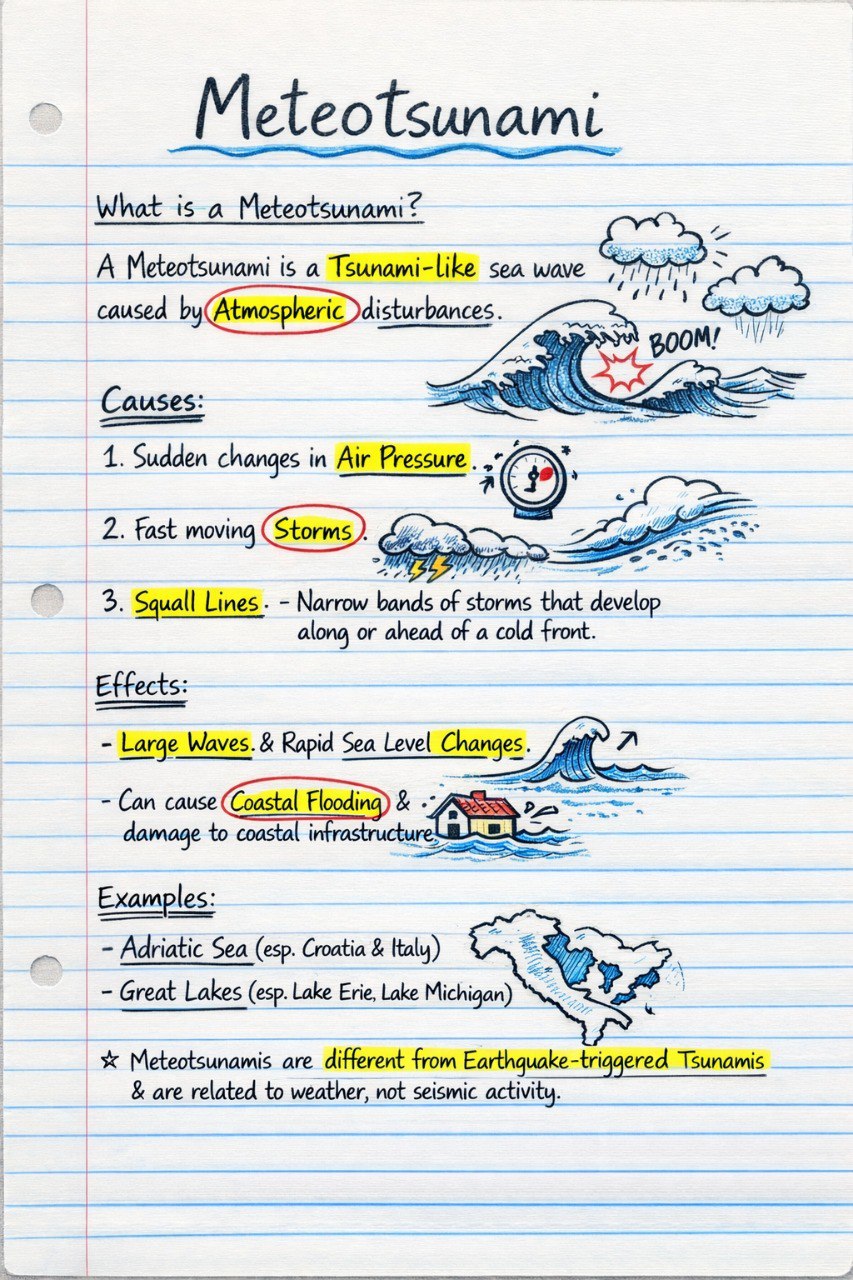 Meteotsunami
What is a Meteotsunami?
A Meteotsunami is a Tsunami-like sea wave
caused by Atmospheric disturbances.
BOOM!
Causes:
1. Sudden changes in Air Pressure.
2. Fast moving Storms.
3. Squall Lines. - Narrow bands of storms that develop
along or ahead of a cold front.
Effects:
- Large Waves. & Rapid Sea Level Changes.
- Can cause Coastal Flooding &
damage to coastal infrastructure
Examples:
- Adriatic Sea (esp. Croatia & Italy)
- Great Lakes (esp. Lake Erie, Lake Michigan)
☆ Meteotsunamis are different from Earthquake-triggered Tsunamis
& are related to weather, not seismic activity.